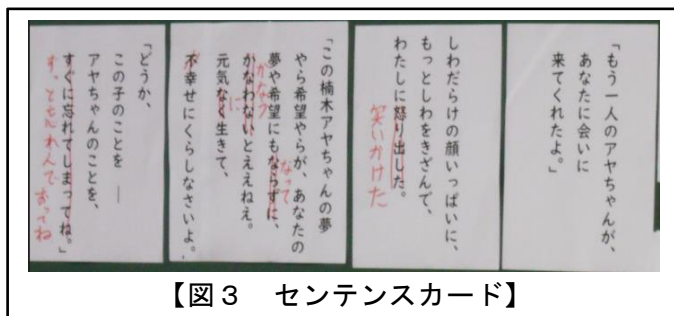 「もう一人のアヤちゃんが、
あなたに会いに
来てくれたよ。」
しわだらけの顔いっぱいに、
もっとしわをきざんで、
わたしに怒り出した。
笑いかけた
「この楠木アヤちゃんの夢
やら希望やらが、あなたの
夢や希望にもならずに、
なって
かなわないとええねえ。
かなう
元気なく生きて、
に
不幸せにくらしなさいよ。」
「どうか、
この子のことを ―
アヤちゃんのことを、
すぐに忘れてしまってね。」
ずっともわすれんで
おってね
【図3 センテンスカード】